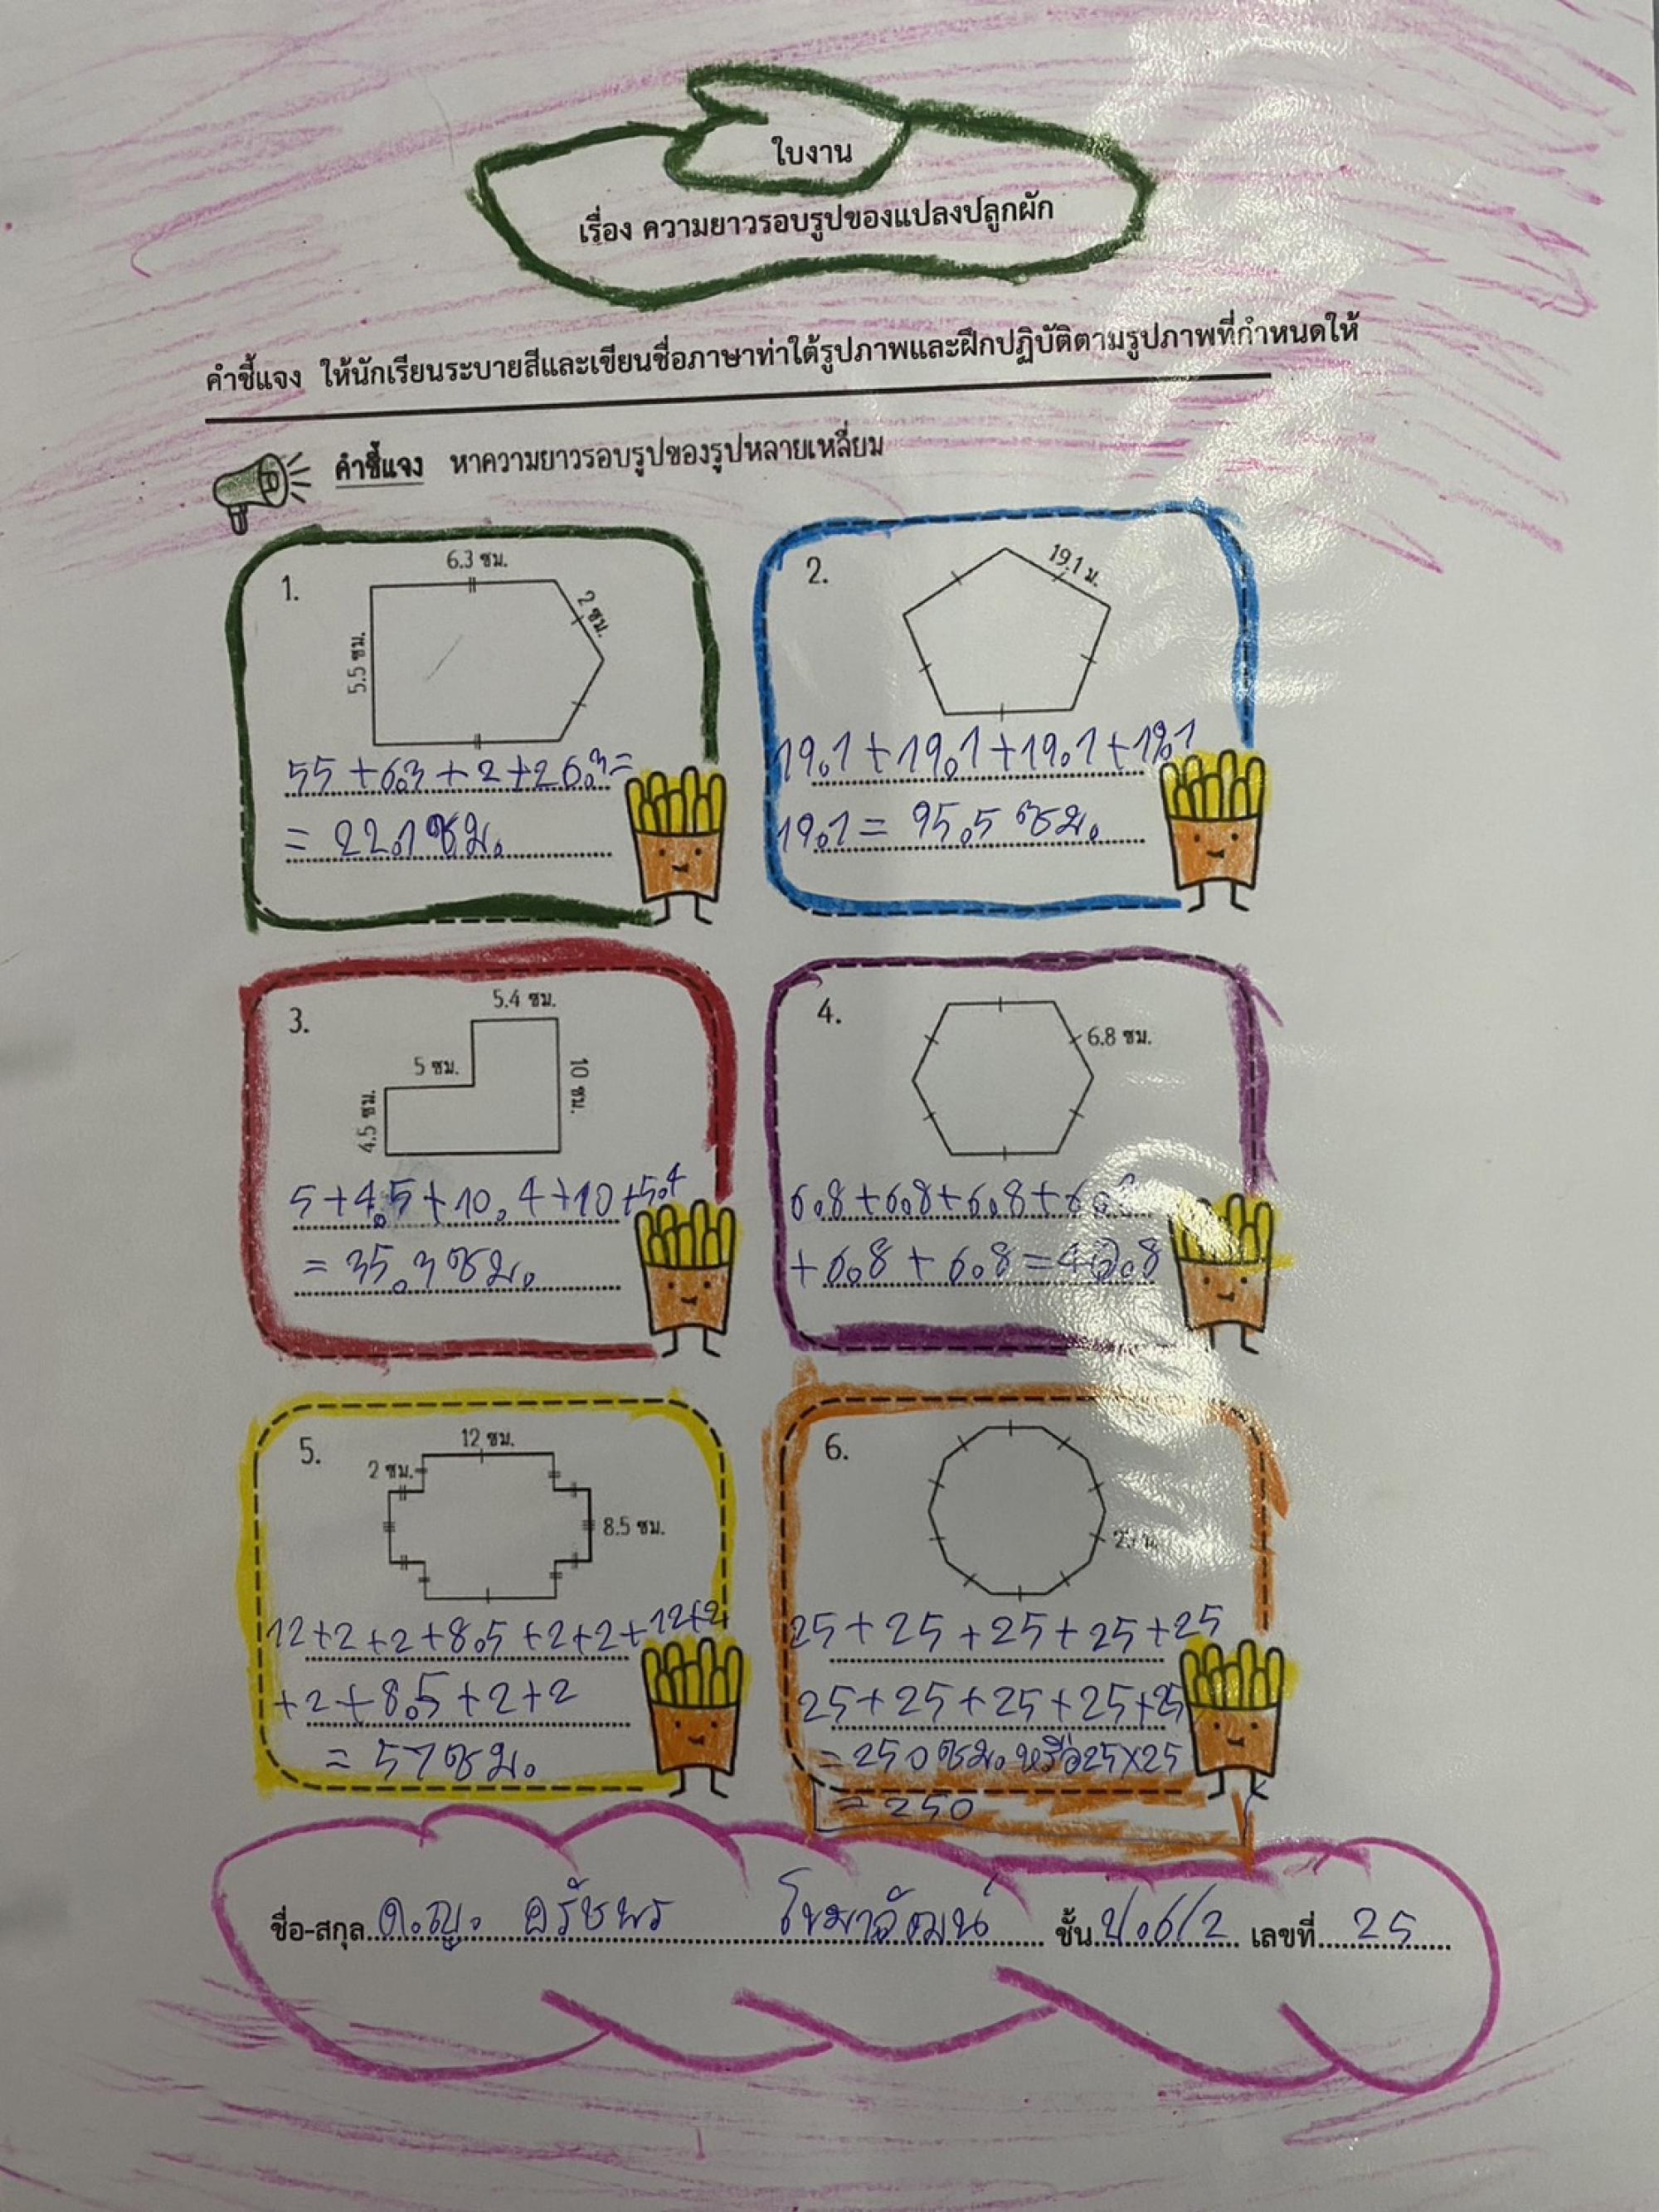 ใบงาน
เรื่อง ความยาวรอบรูปของแปลงปลูกผัก
คำชี้แจง ให้นักเรียนระบายสีและเขียนชื่อภาษาท่าใต้รูปภาพและฝึกปฏิบัติตามรูปภาพที่กำหนดให้
คำชี้แจง หาความยาวรอบรูปของรูปหลายเหลี่ยม
1.
6.3 ซม.
2 ซม.
5.5 ซม.
55+6.3+2+26.3=
= 22.1 ซม.
2.
19.1 ม.
19.1+19.1+19.1+19.1
19.1 = 95.5 ซม.
3.
5.4 ซม.
5 ซม.
10 ซม.
4.5 ซม.
5+4.5+10.4+10+5.4
= 35.3 ซม.
4.
6.8 ซม.
6.8+6.8+6.8+6.8
+6.8+6.8=40.8
5.
12 ซม.
2 ซม.
8.5 ซม.
12+2+2+8.5+2+2+12+2
+2+8.5+2+2
= 57 ซม.
6.
25+25+25+25+25
25+25+25+25+25
= 250 ซม. หรือ 25x25
= 250
ชื่อ-สกุล ด.ญ. ชั้น ป.6/2 เลขที่ 25